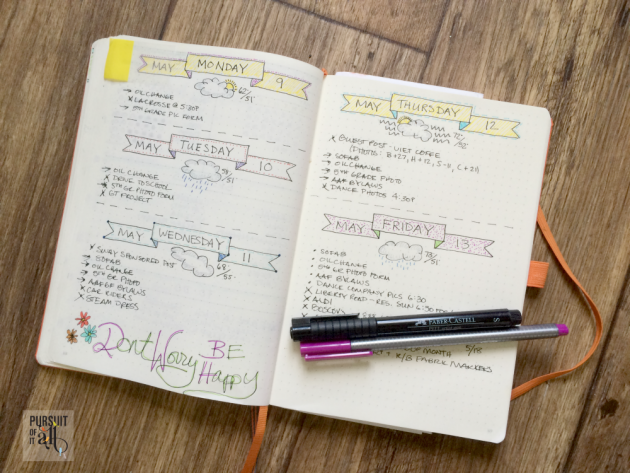 MAY MONDAY 9
→ OIL CHANGE
X LACROSSE @ 5:30P
→ 5TH GRADE PIC FORM
MAY TUESDAY 10
→ OIL CHANGE
X DRIVE TO SCHOOL
→ 5TH GR PHOTO FORM
X GT PROJECT
MAY WEDNESDAY 11
X SWAY SPONSORED POST
→ SOFAB
→ OIL CHANGE
→ 5TH GR PHOTO
X AAFGF BYLAWS
X CAR RIDERS
X STEAM DRESS
Don't Worry BE
Happy
MAY THURSDAY 12
X GUEST POST - VIET COFFEE
→ SOFAB
→ OIL CHANGE
→ 5TH GRADE PHOTO
→ AAF BYLAWS
X DANCE PHOTOS 4:30P
MAY FRIDAY 13
• SOFAB
• OIL CHANGE
• 5TH GR PHOTO FORM
• AAF BYLAWS
X DANCE COMPANY PICS 6:30
X LIBERTY FOOD - REG. SUN 6:30
X ALDI
MONTH 5/18
FABRIC MARKERS
FABER-CASTELL S
PURSUIT
OF IT all